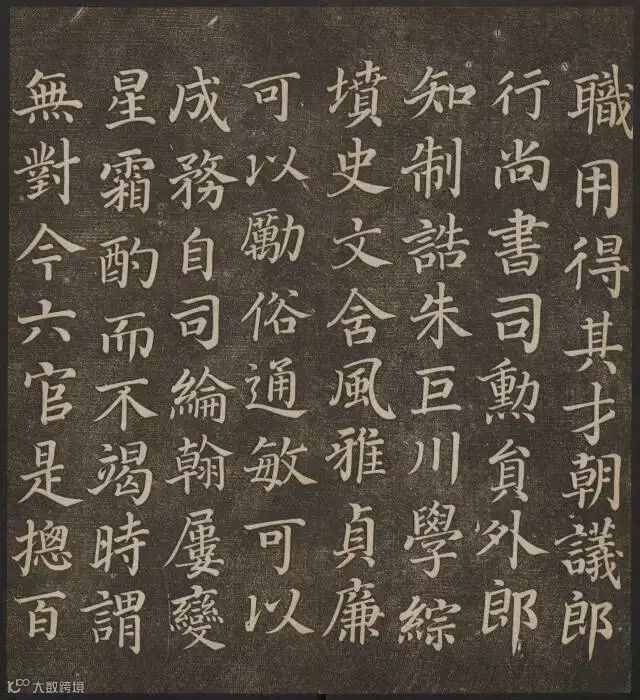 職用得其才朝議郎
行尚書司勳員外郎
知制誥朱巨川學綜
墳史文含風雅貞廉
可以勵俗通敏可以
成務自司綸翰屢變
星霜酌而不竭時謂
無對今六官是摠百
大数跨境